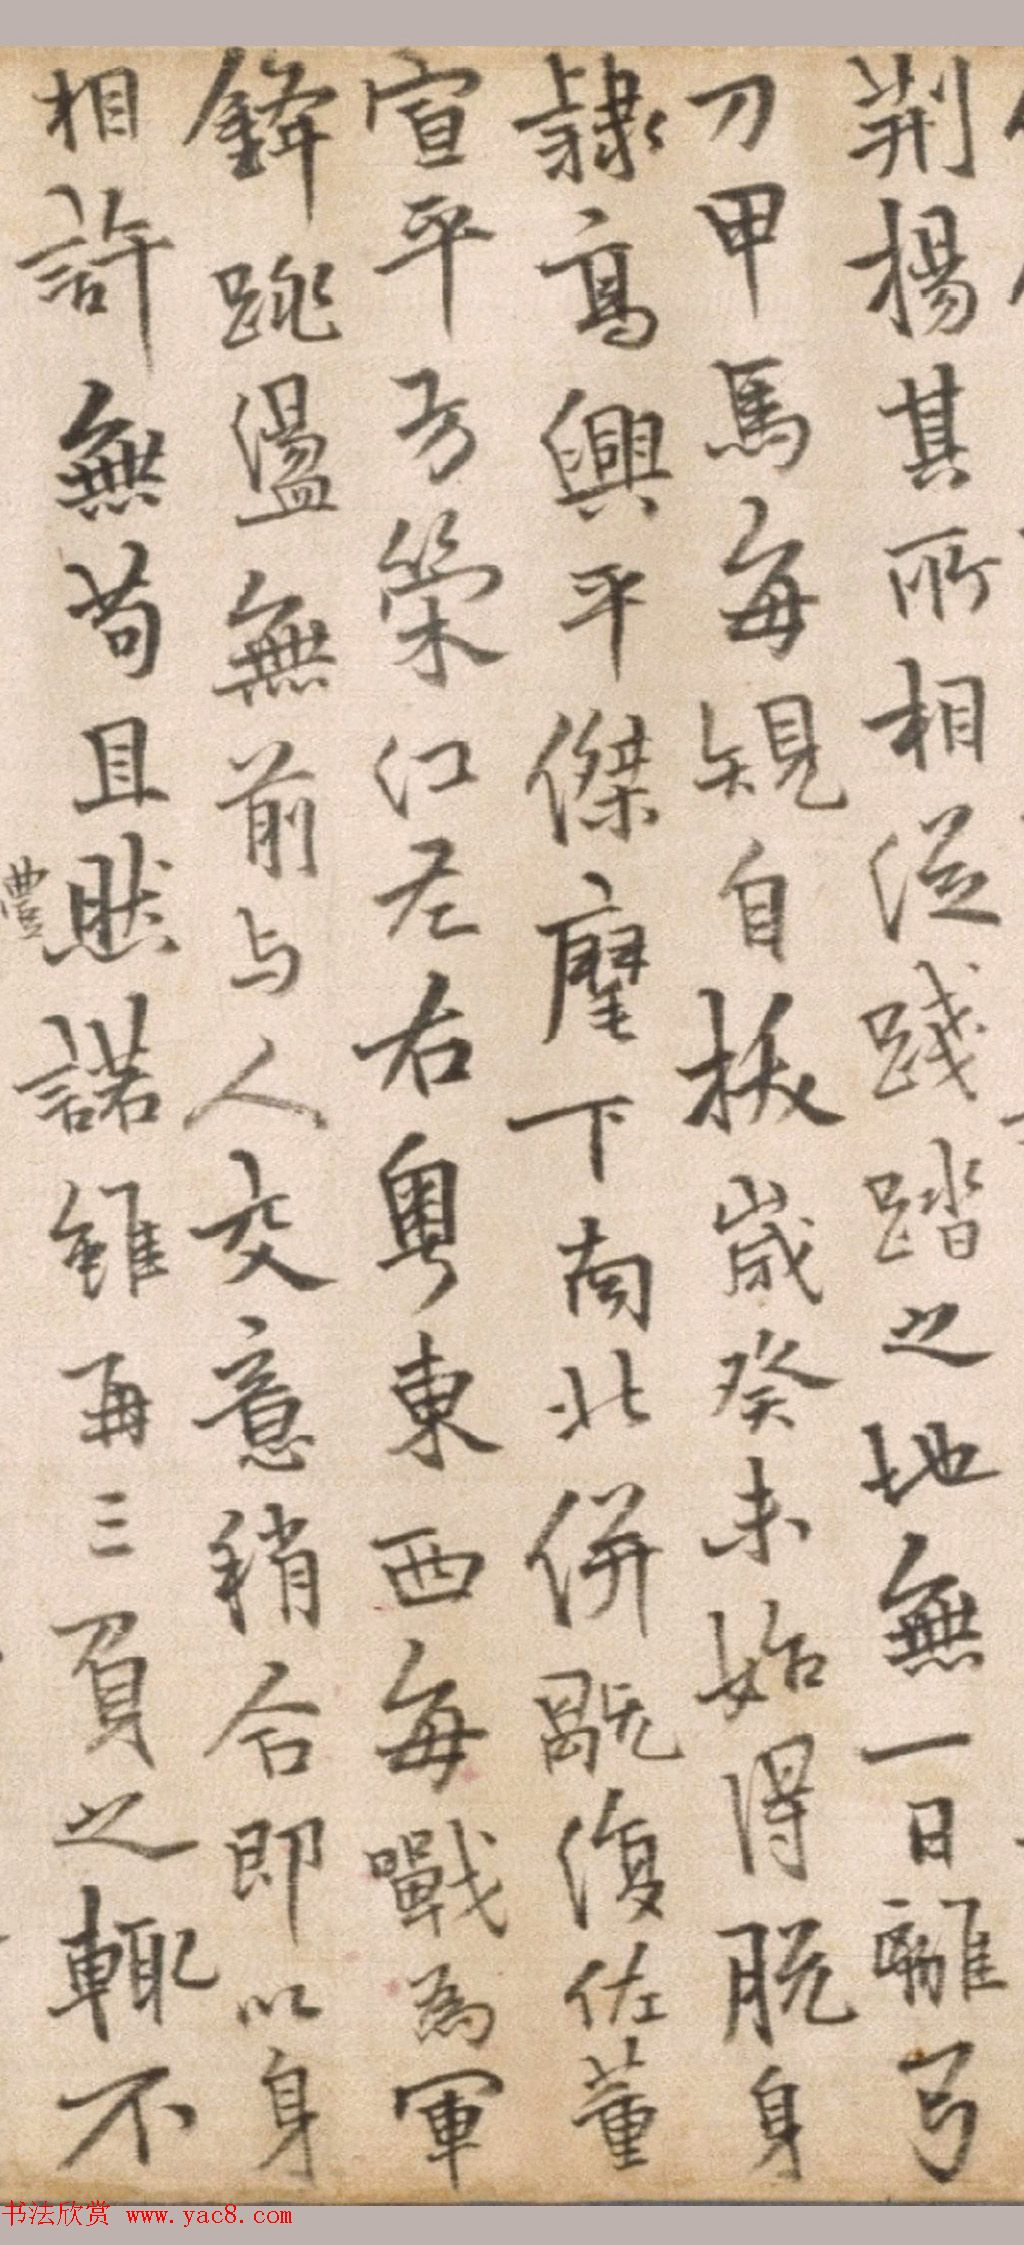 荆楊其所相從踐踏之地無一日離弓
刀甲馬每規自拔歲癸未始得脱身
隸高興平傑麾下南北併既復佐董
宣平方策江左右粤東西每戰為軍
鋒跳盪無前与人交意稍合即以身
相許無苟且然諾雖再三負之輒不
豐
书法欣赏 www.yac8.com